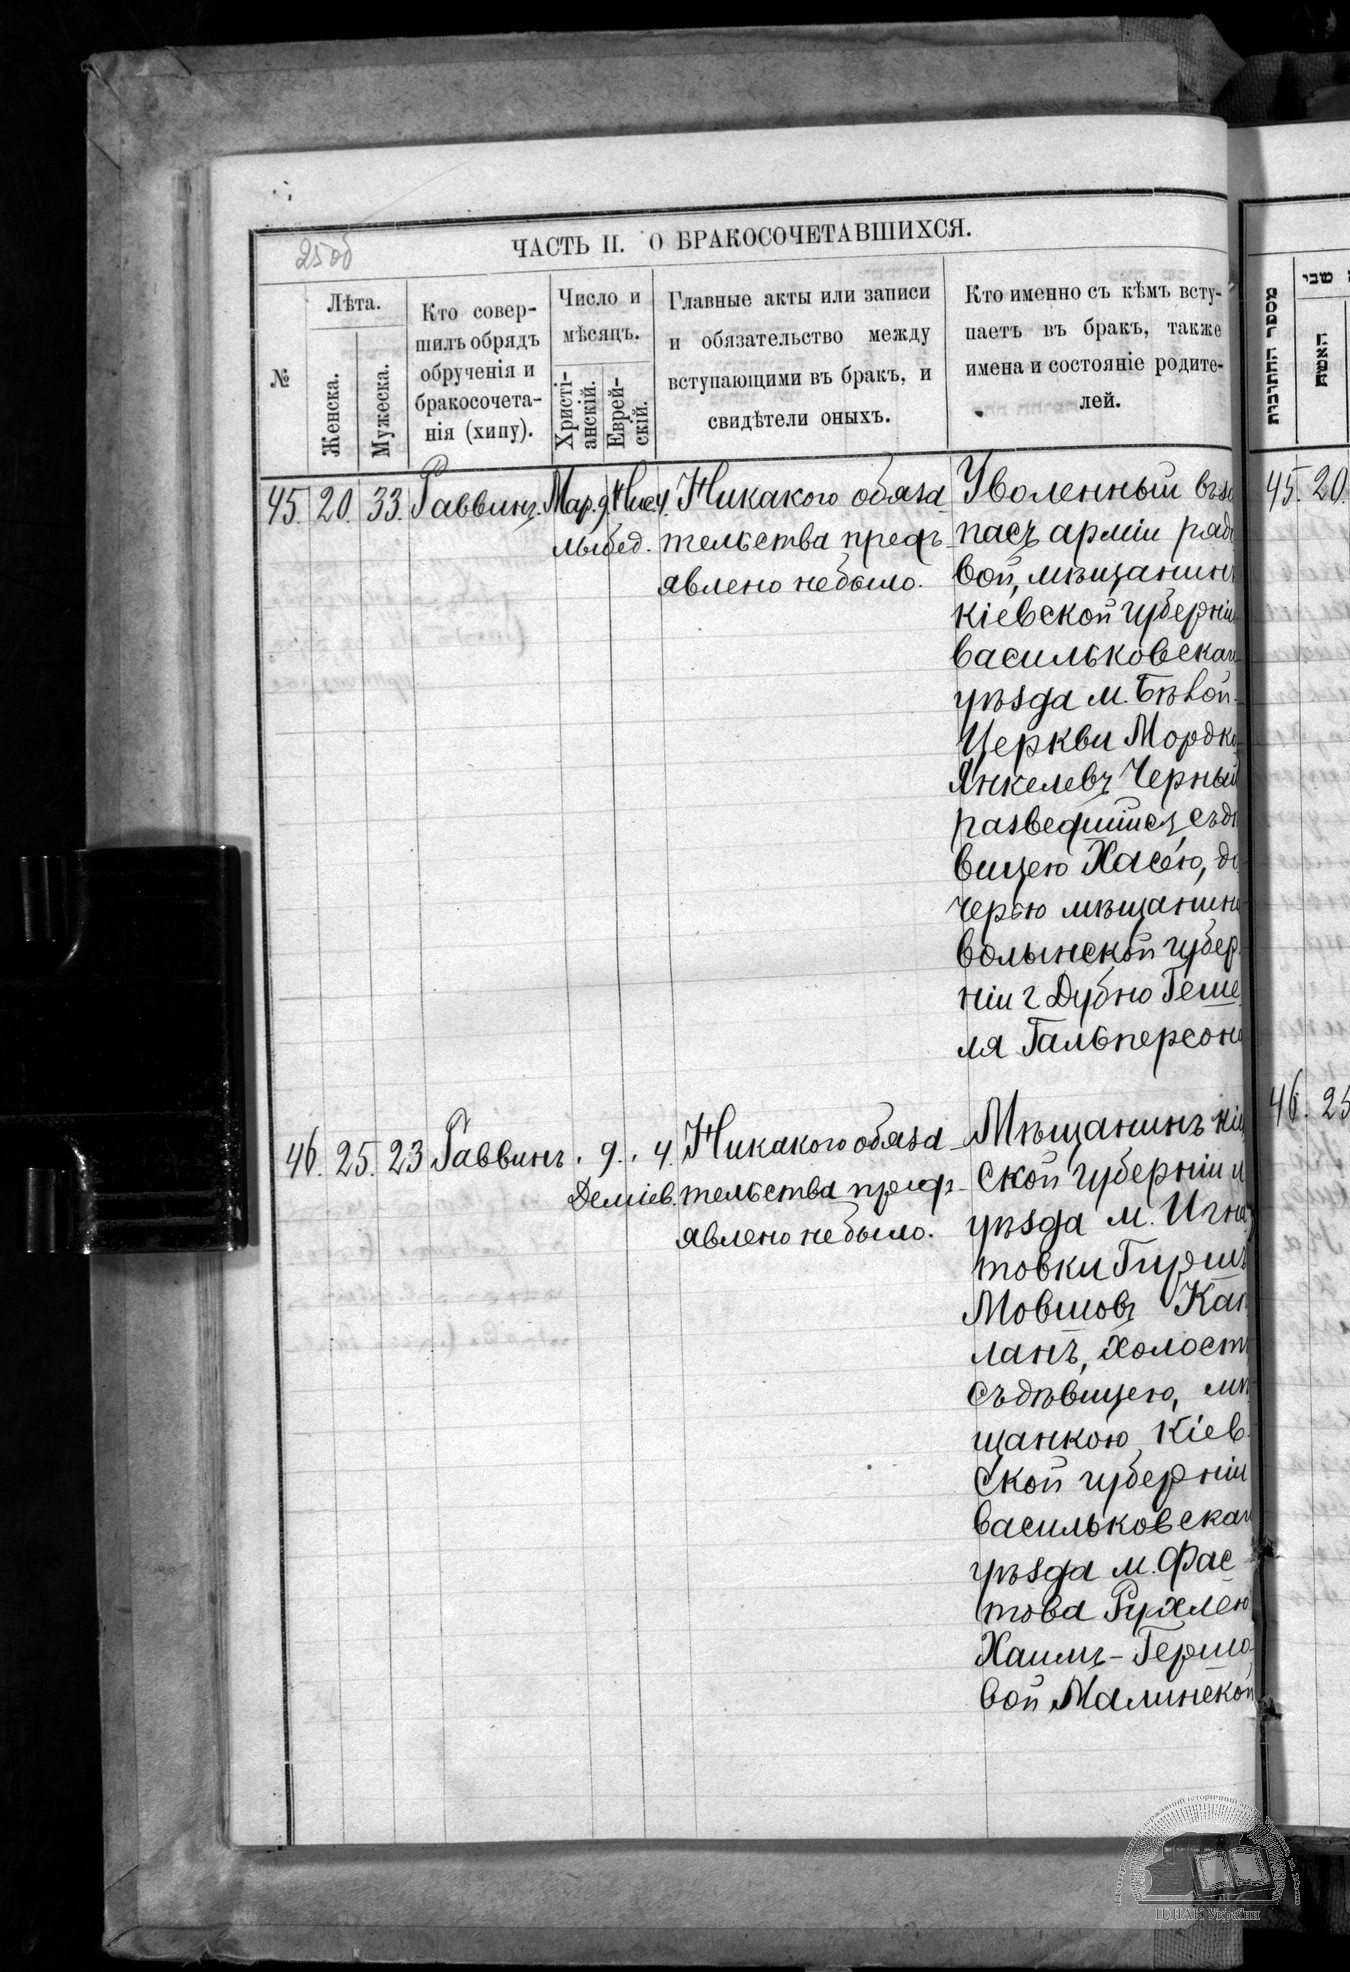 25об
ЧАСТЬ II. О БРАКОСОЧЕТАВШИХСЯ.
№
Лѣта.
Женска.
Мужеска.
Кто совер-
шилъ обрядъ
обрученія и
бракосочета-
нія (хипу).
Число и
мѣсяцъ.
Христі-
анскій.
Еврей-
скій.
Главные акты или записи
и обязательство между
вступающими въ бракъ, и
свидѣтели оныхъ.
Кто именно съ кѣмъ всту-
паетъ въ бракъ, также
имена и состояніе родите-
лей.
45. 20. 33. Раввинъ. Мар. 9. Нис. 4.
Лыбед.
Никакого обяза
тельства предъ
явлено небыло.
Уволенный въ за
пасъ арміи рядо
вой, мѣщанинъ
Кіевской губерніи
Васильковскаго
уѣзда м. Бѣлой-
Церкви Мордко
Янкелевъ Черный
разведшійся, съ дѣ
вицею Хасею, до
черью мѣщанина
Волынской губер
ніи г. Дубно Геше
ля Гальперсона
46. 25. 23 Раввинъ. 9. 4.
Деміев.
Никакого обяза
тельства предъ
явлено небыло.
Мѣщанинъ Кіев
ской губерніи и
уѣзда м. Игна
товки Гиршъ
Мовшовъ Кап
ланъ, холостъ
съ дѣвицею, мѣ
щанкою Кіев
ской губерніи
Васильковскаго
уѣзда м. Фас
това Рухлею
Хаимъ-Гершо
вой Малинской
מספר החתונות
שני
האשה
45. 20.
46. 25
ЦДІАК України